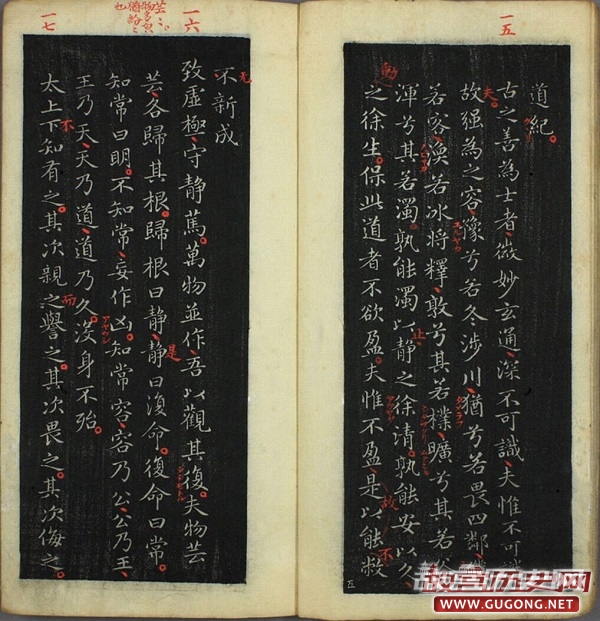 一五
道紀
古之善為士者微妙玄通深不可識夫惟不可
故强為之容豫兮若冬涉川猶兮若畏四鄰
若客渙若冰將釋敦兮其若樸曠兮其若
渾兮其若濁孰能濁以静之徐清孰能安以久
之徐生保此道者不欲盈夫惟不盈是以能敝
夫
止
故
不
一六
一七
不新成
致虛極守静篤萬物並作吾以觀其復夫物芸
芸各歸其根歸根曰静静曰復命復命曰常
知常曰明不知常妄作凶知常容容乃公公乃王
王乃天天乃道道乃久沒身不殆
太上下知有之其次親之譽之其次畏之其次侮之
无
是
而
不
故宫历史网
WWW.GUGONG.NET